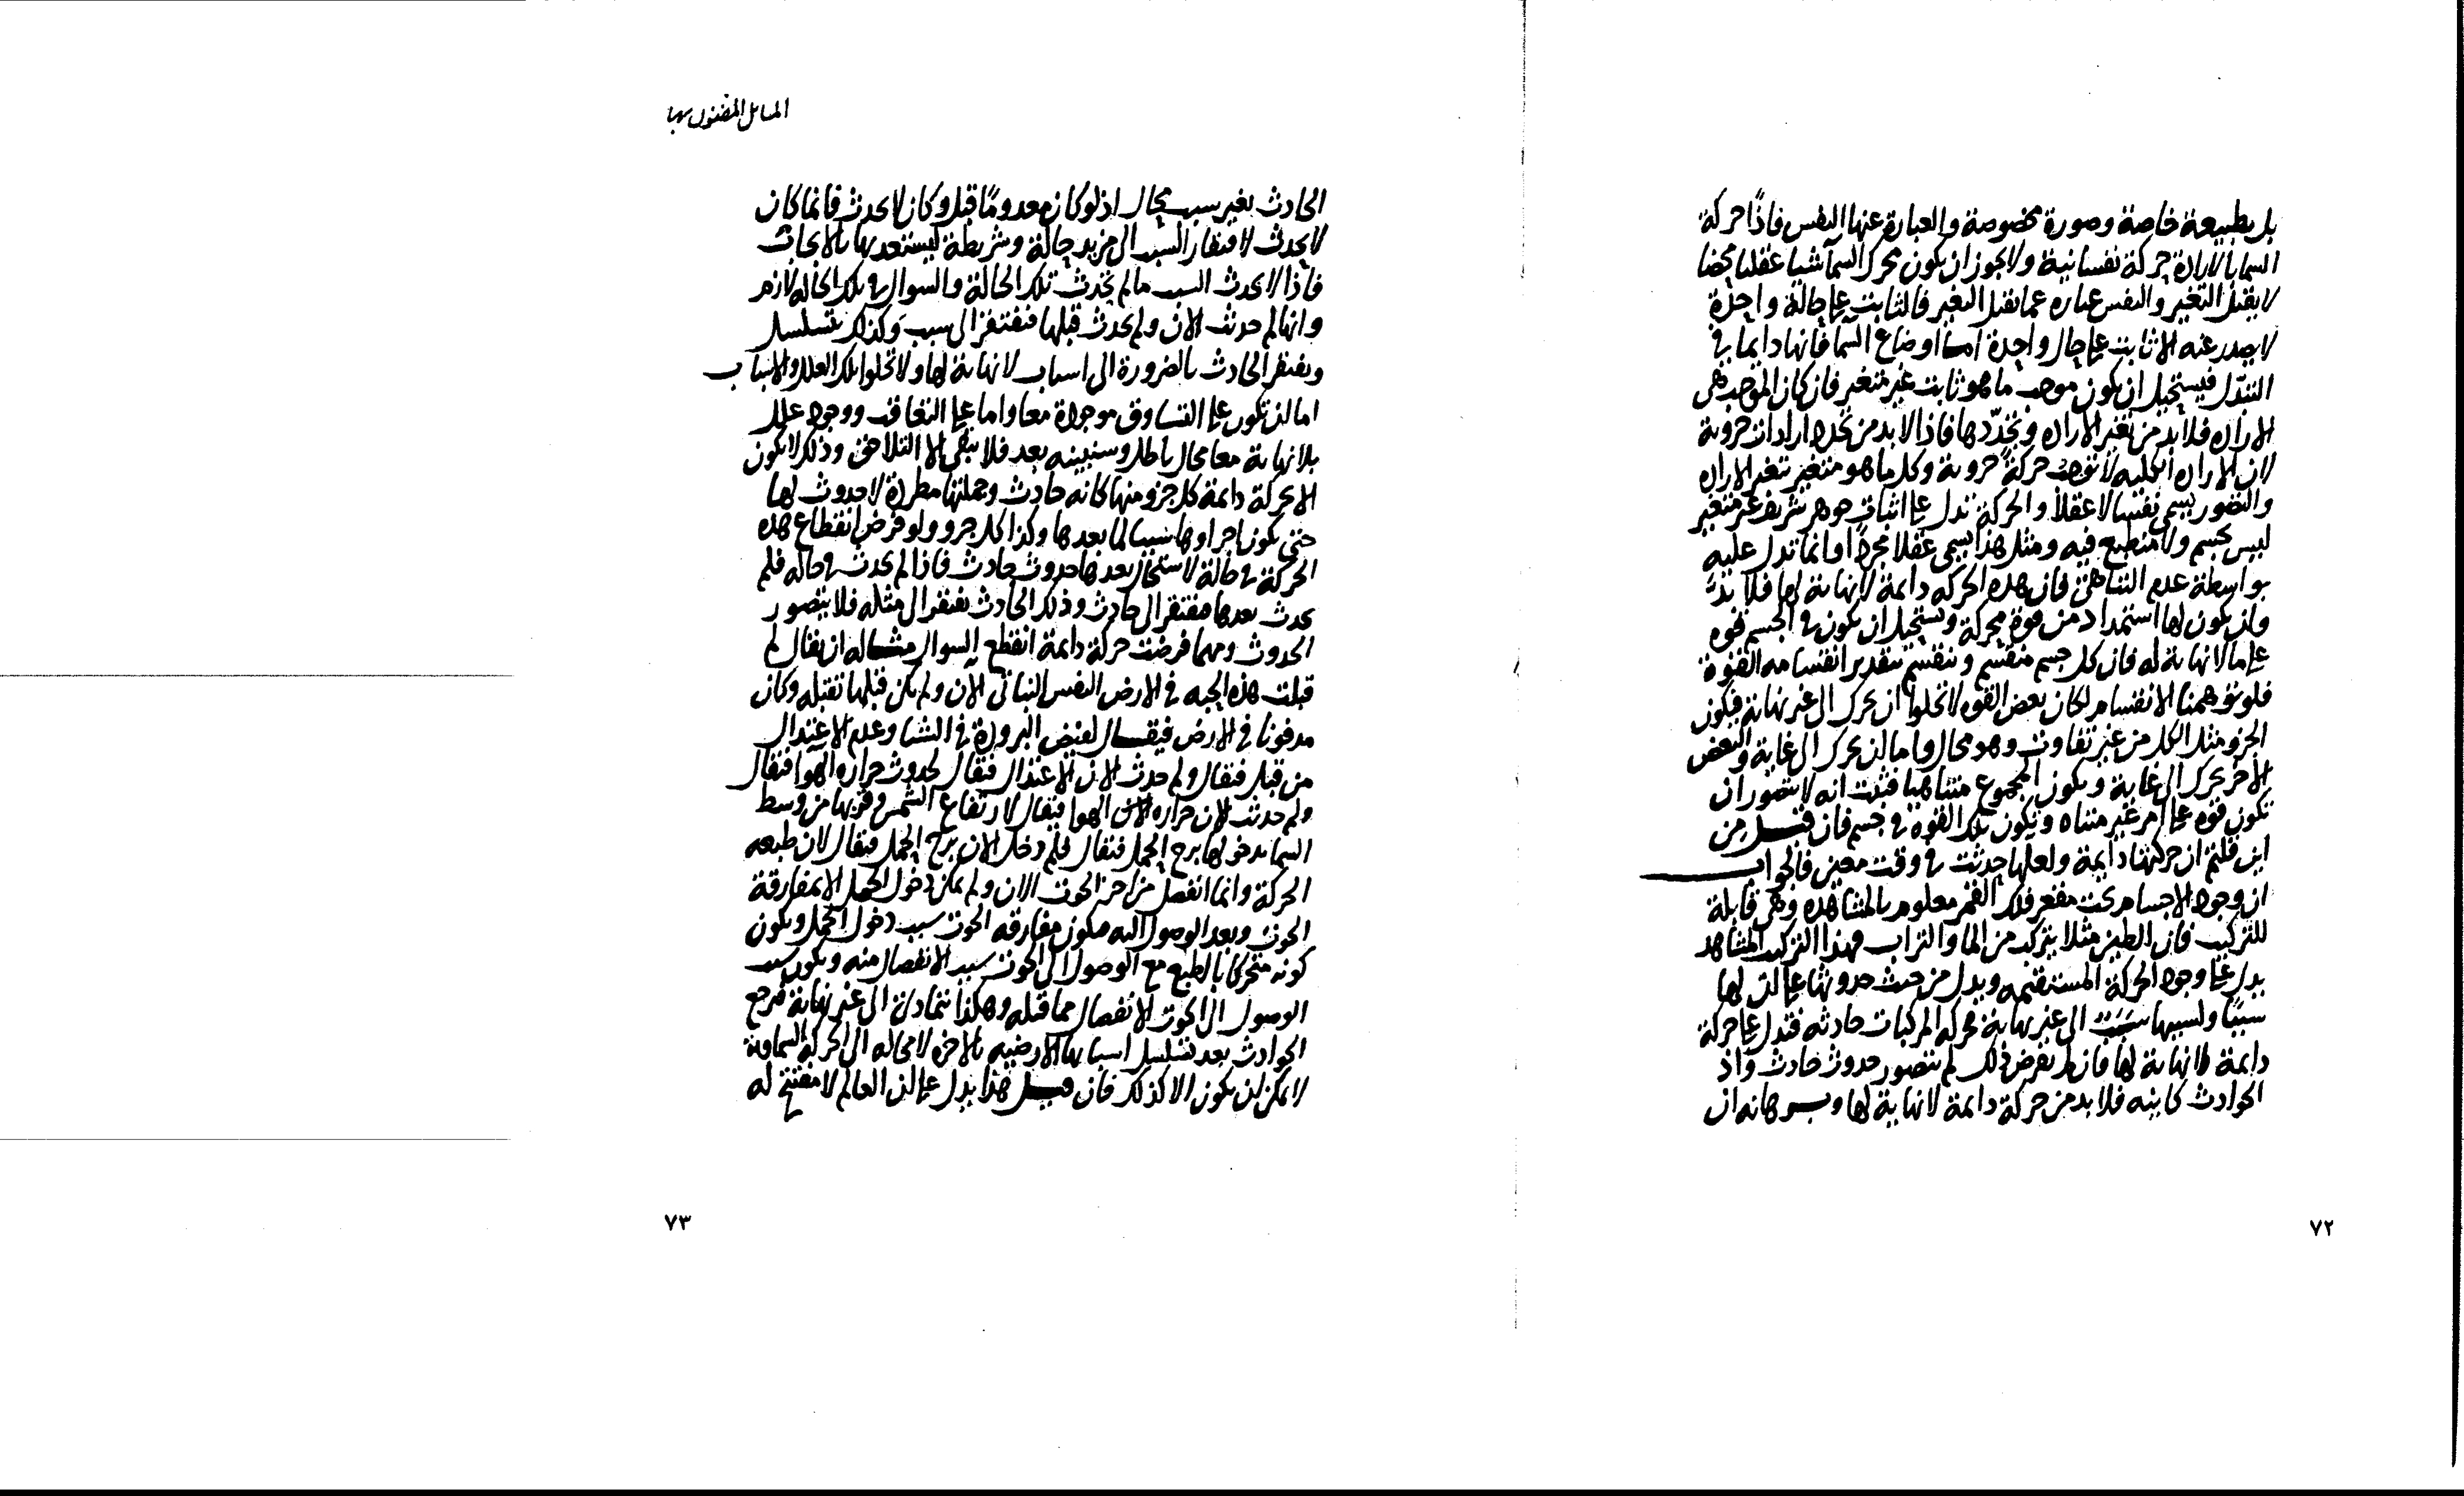 بل بطبيعة خاصة وصورة مخصوصة والعبارة عنها النفس فاذًا حركة
السما بالارادة حركة نفسانية ولا يجوز ان يكون محرك السمآ شيا عقليا محضا
لا يقبل التغير والنفس عباره عما يقبل التغير فالثابت على حالة واحدة
لا يصدر عنه الا ثابت على حال واحدة اما اوضاع السما فانها دايما في
التبدّل فيستحيل ان يكون موجب ما هو ثابت غير متغير فان كان الموجب هي
الاراده فلا بد من تغير الاراده وتجدّدها فاذا لا بد من تجدد ارادات جزوية
لان الاراده الكليه لا توجب حركةً جزوية وكل ما هو متغير بتغير الاراده
والتصور يسمى نفسا لا عقلاً والحركة تدل على اثبات جوهر شريف غير متغير
ليس بجسم ولا منطبع فيه ومثل هذا يسمى عقلا مجردًا وانما تدل عليه
بواسطة عدم التناهي فان هذه الحركه دايمة لا نهاية لها فلا بدّ
وان يكون لها استمداد من قوة محركة ويستحيل ان يكون في الجسم قوه
على ما لا نهاية له فان كل جسم منقسم وينقسم بتقدير انقسامه القوة
فلو توهمنا الانقسام لكان بعض القوه لا تخلوا ان يحرك الى غير نهاية فيكون
الجزو مثل الكل من غير تفاوت وهو محال واما ان يحرك الى غاية والبعض
الاخر يحرك الى غاية ويكون المجموع متناهيا فثبت انه لا يتصور ان
تكون قوه على امر غير متناه ويكون تلك القوة في جسم فان قيل من
اين قلتم ان حركتها دايمة ولعلها حدثت في وقت معين فالجواب
ان وجود الاجسام تحت مقعر فلك القمر معلوم بالمشاهده وهى قابلة
للتركيب فان الطين مثلا يتركب من الما والتراب فهذا التركيب المشاهد
يدل على وجود الحركة المستقيمه ويدل من حيث حدوثها على ان لها
سببًا ولسببها سبب الى غير نهاية فحركه المركبات حادثه فتدل على حركة
دايمة لا نهاية لها فان لم يفرض ذلك لم يتصور حدوث حادث واذ
الحوادث كاينه فلا بد من حركة دايمة لا نهاية لها وبرهانه ان
٧٢
المسائل المضنون بها
الحادث بغير سبب محال اذ لو كان معدومًا قبل وكان لا يحدث فانما كان
لا يحدث لافتقار السبب الى مزيد حالة وشريطة ليستعد بها بالايجاب
فاذا لا يحدث السبب ما لم تحدث تلك الحالة والسوال في تلك الحاله لازم
وانها لم حدثت الان ولم يحدث قبلها فتفتقر الى سبب وكذلك يتسلسل
ويفتقر الحادث بالضرورة الى اسباب لا نهاية لها ولا تخلوا تلك العلل والاسباب
اما ان تكون على التساوق موجودة معا واما على التعاقب ووجود علل
بلا نهاية معا محال باطل وسنبينه بعد فلا يبقى الا التلاحق وذلك لا يكون
الا بحركة دايمة كل جزو منها كانه حادث وجملتها مطردة لا حدوث لها
حتى يكون اجزاوها سببا لما بعدها وكذا كل جزو ولو فرض انقطاع هذه
الحركة في حالة لاستحال بعدها حدوث حادث فاذا لم يحدث في حاله فلم
يحدث بعدها فيفتقر الى حادث وذلك الحادث يفتقر الى مثله فلا يتصور
الحدوث ومهما فرضت حركة دايمة انقطع السوال مثاله ان يقال لم
قبلت هذه الحبه في الارض النفس النباتى الان ولم تكن قبلها تقبله وكان
مدفونا في الارض فيقال لفيض البرودة في الشتا وعدم الاعتدال
من قبل فيقال ولم حدث الان الاعتدال فيقال لحدوث حراره الهوا فيقال
ولم حدثت الان حراره الهوا فيقال لارتفاع الشمس وقربها من وسط
السما بدخولها برج الحمل فيقال فلم دخل الان برج الحمل فيقال لان طبعه
الحركة وانما انفصل من اخر الحوت الان ولم يمكن دخول الحمل الا بمفارقة
الحوت وبعد الوصول اليه فيكون مفارقه الحوت سبب دخول الحمل ويكون
كونه متحركا بالطبع مع الوصول الى الحوت سبب الانفصال منه ويكون سبب
الوصول الى الحوت الانفصال مما قبله وهكذا يتمادى الى غير نهاية فترجع
الحوادث بعد تسلسل اسبابها الارضيه بالاخره لا محاله الى الحركه السماوية
لا يمكن ان يكون الا كذلك فان قيل هذا يدل على ان العالم لا مفتتح له
٧٣